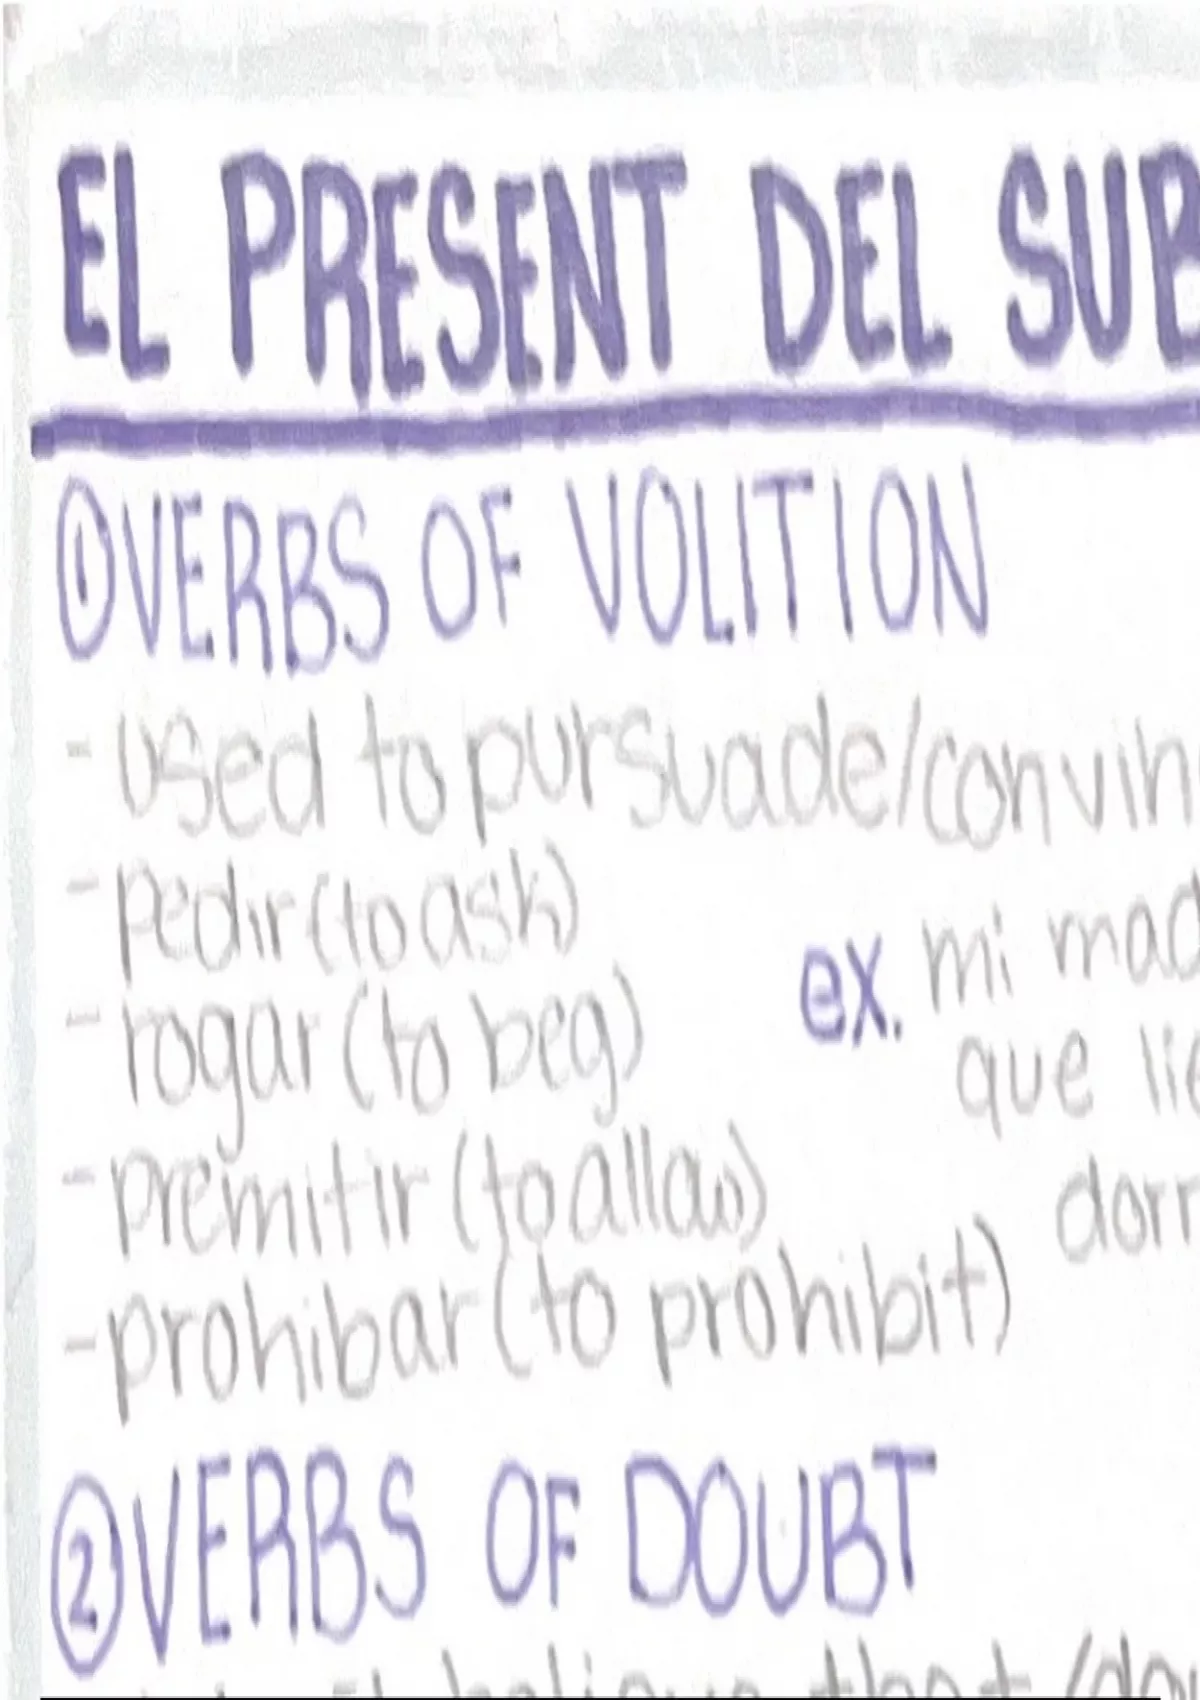 EL PRESENT DEL SUB
① VERBS OF VOLITION
- used to pursuade/convin
- pedir (to ask)
ex. mi mad
- rogar (to beg)
que lie
- premitir (to allow)
dorr
- prohibar (to prohibit)
② VERBS OF DOUBT
believe that